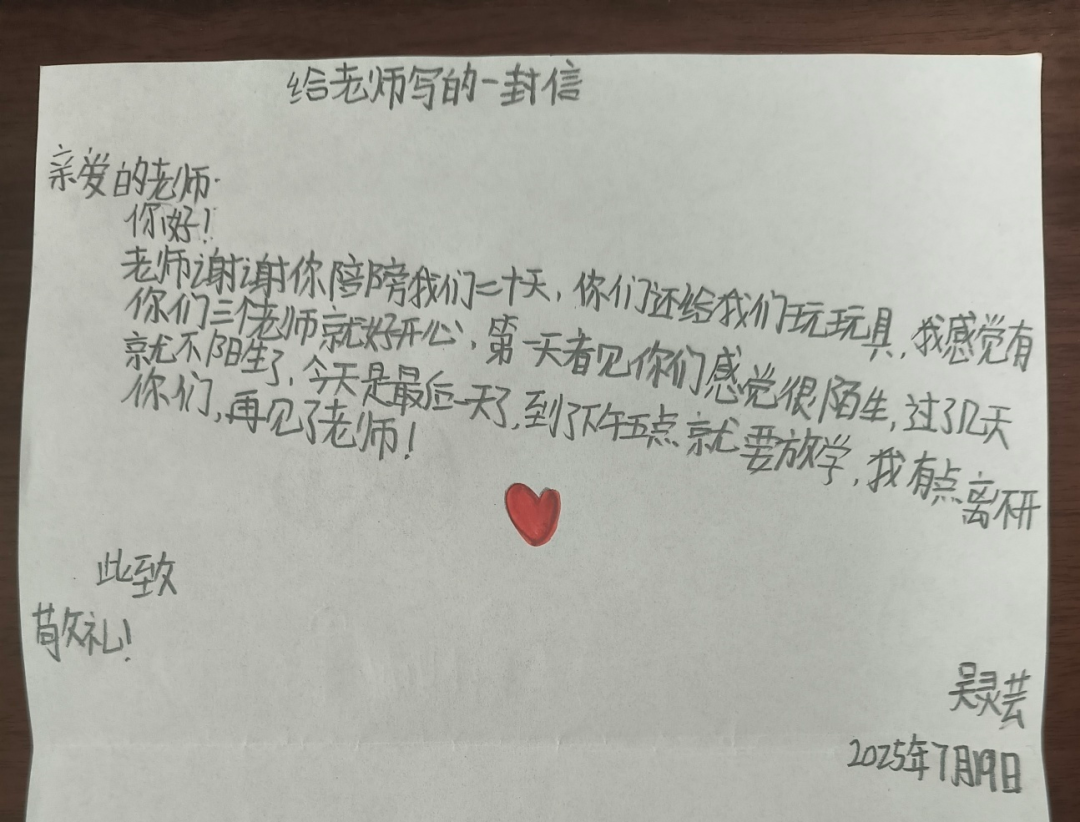 给老师写的一封信
亲爱的老师·
你好！
老师谢谢你陪陪我们二十天，你们还给我们玩玩具，我感觉有
你们三个老师就好开心，第一天看见你们感觉很陌生，过了几天
就不陌生了，今天是最后一天了，到了下午五点就要放学，我有点离不开
你们，再见了老师！
此致
敬礼！
吴灵芸
2025年7月19日